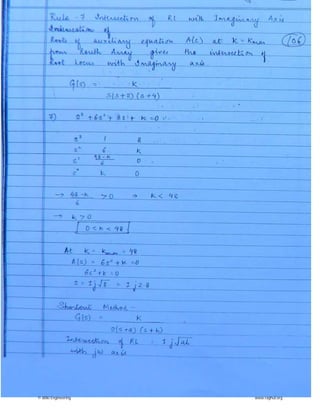 Rule - 7 Intersection of RL with Imaginary Axis
Intersection of
Roots of auxiliary equation A(s) at K = Kmax
from Routh Array gives the intersection of
Root locus with Imaginary axis
106
G(s) = K
S(s+2)(s+4)
7) s³ + 6s² + 8s + K = 0
s³ 1 8
s² 6 K
s¹ 48-K/6 0
s⁰ K 0
→ 48-K/6 > 0 ⇒ K < 48
→ K > 0
0 < K < 48
At K = Kmax = 48
A(s) = 6s² + K = 0
6s² + K = 0
s = ± j√8 = ± j 2.8
Shortcut Method -
G(s) = K
s(s+a)(s+b)
Intersection of RL = ± j√ab
with jω axis